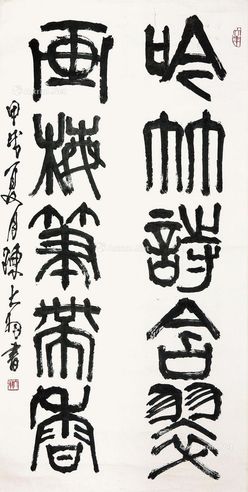 吟竹詩含翠
画梅筆帶香
甲戌夏月陳大羽書